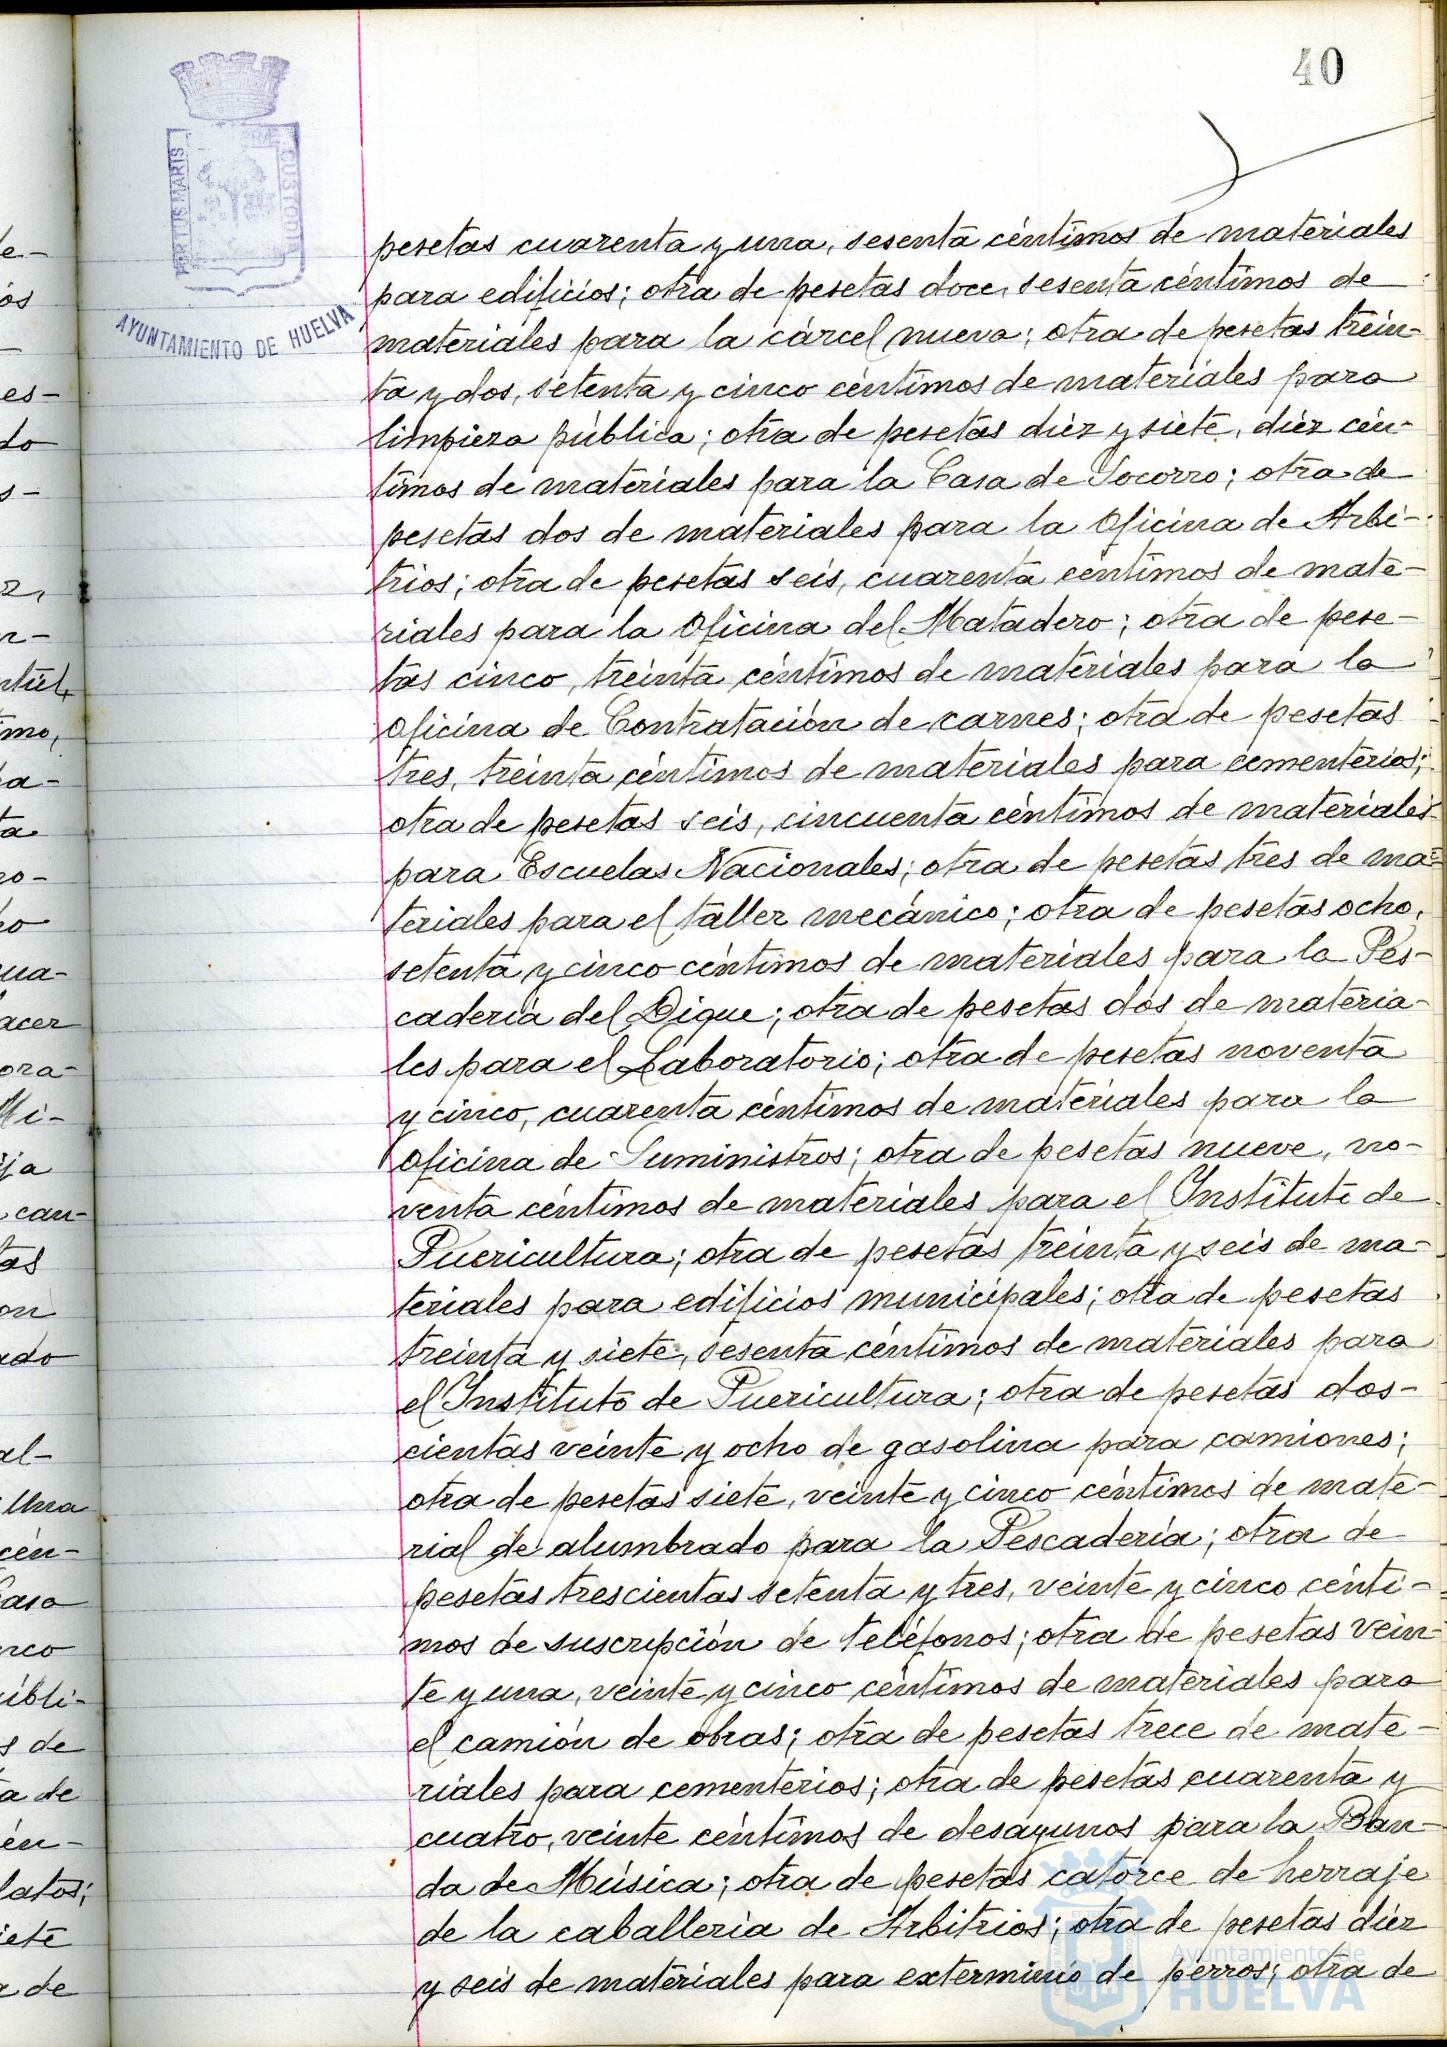 40
PORTUS MARIS
CUSTODIA
AYUNTAMIENTO DE HUELVA
pesetas cuarenta y una, sesenta céntimos de materiales
para edificios; otra de pesetas doce, sesenta céntimos de
materiales para la cárcel nueva; otra de pesetas trein-
ta y dos, setenta y cinco céntimos de materiales para
limpieza pública; otra de pesetas diéz y siete, diéz cén-
timos de materiales para la Casa de Socorro; otra de
pesetas dos de materiales para la Oficina de Arbi-
trios; otra de pesetas seis, cuarenta céntimos de mate-
riales para la Oficina del Matadero; otra de pese-
tas cinco, treinta céntimos de materiales para la
Oficina de Contratación de carnes; otra de pesetas
tres, treinta céntimos de materiales para cementerios;
otra de pesetas seis, cincuenta céntimos de materiales
para Escuelas Nacionales; otra de pesetas tres de ma-
teriales para el taller mecánico; otra de pesetas ocho,
setenta y cinco céntimos de materiales para la Pes-
cadería del Dique; otra de pesetas dos de materia-
les para el Laboratorio; otra de pesetas noventa
y cinco, cuarenta céntimos de materiales para la
Oficina de Suministros; otra de pesetas nueve, no-
venta céntimos de materiales para el Instituto de
Puericultura; otra de pesetas treinta y seis de ma-
teriales para edificios municipales; otra de pesetas
treinta y siete, sesenta céntimos de materiales para
el Instituto de Puericultura; otra de pesetas dos-
cientas veinte y ocho de gasolina para camiones;
otra de pesetas siete, veinte y cinco céntimos de mate-
rial de alumbrado para la Pescadería; otra de
pesetas trescientas setenta y tres, veinte y cinco cénti-
mos de suscripción de teléfonos; otra de pesetas vein-
te y una, veinte y cinco céntimos de materiales para
el camión de obras; otra de pesetas trece de mate-
riales para cementerios; otra de pesetas cuarenta y
cuatro, veinte céntimos de desayunos para la Ban-
da de Música; otra de pesetas catorce de herraje
de la caballeria de Arbitrios; otra de pesetas diéz
y seis de materiales para exterminio de perros; otra de
Ayuntamiento de
HUELVA